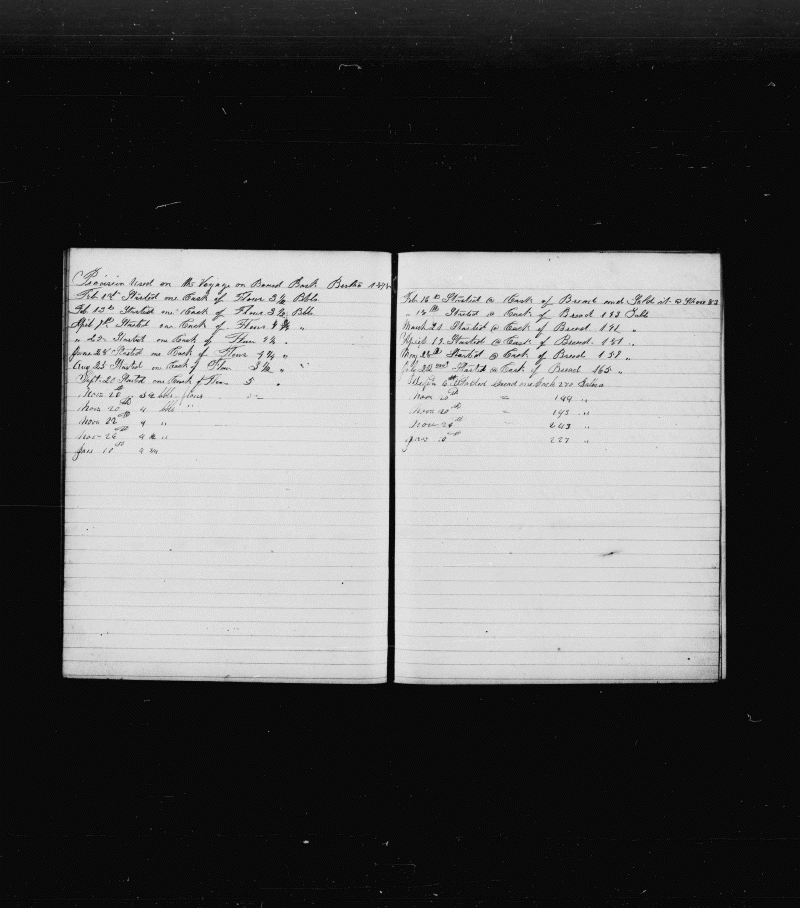 Provision Used on the Voyage on Board Bark Bertha
Feb 1st Started one Cask of Flour 3 1/2 Bbls
Feb 13th Started one Cask of Flour 3 1/2 Bbls
April 7th Started one Cask of Flour 4 3/4 "
" 20 Started one Cask of Flour 4 3/4 "
June 28 Started one Cask of Flour 4 3/4 "
Aug 23 Started one Cask of Flour 3 1/2 "
Sept 20 Started one Cask of Flour 5 "
Nov 20th bbls flour
Nov 20th 4 bbls
Nov 22th 4 "
Nov 24th 4 "
Jan 10th 4 3/4
Feb 16th Started a Cask of Bread and
" 14th Started a Cask of Bread 193
March 21 Started a Cask of Bread 191 "
April 19 Started a Cask of Bread 181 "
May Started a Cask of Bread 157 "
July 22nd Started a Cask of Bread 165 "
6th Started bread one Cask 270
Nov 20th = 144 "
Nov 20th = 193 "
Nov 24th = 243 "
Jan 10th 227 "